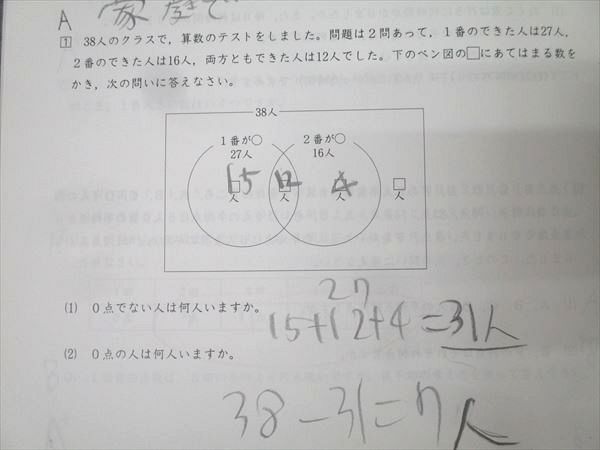 A
1 38人のクラスで，算数のテストをしました。問題は2問あって，1番のできた人は27人，
2番のできた人は16人，両方ともできた人は12人でした。下のベン図の□にあてはまる数を
かき，次の問いに答えなさい。
38人
1番が○ 2番が○
27人 16人
15 12 4 □
人 人 人 人
(1) 0点でない人は何人いますか。
27
15+12+4=31人
(2) 0点の人は何人いますか。
38-31=7人